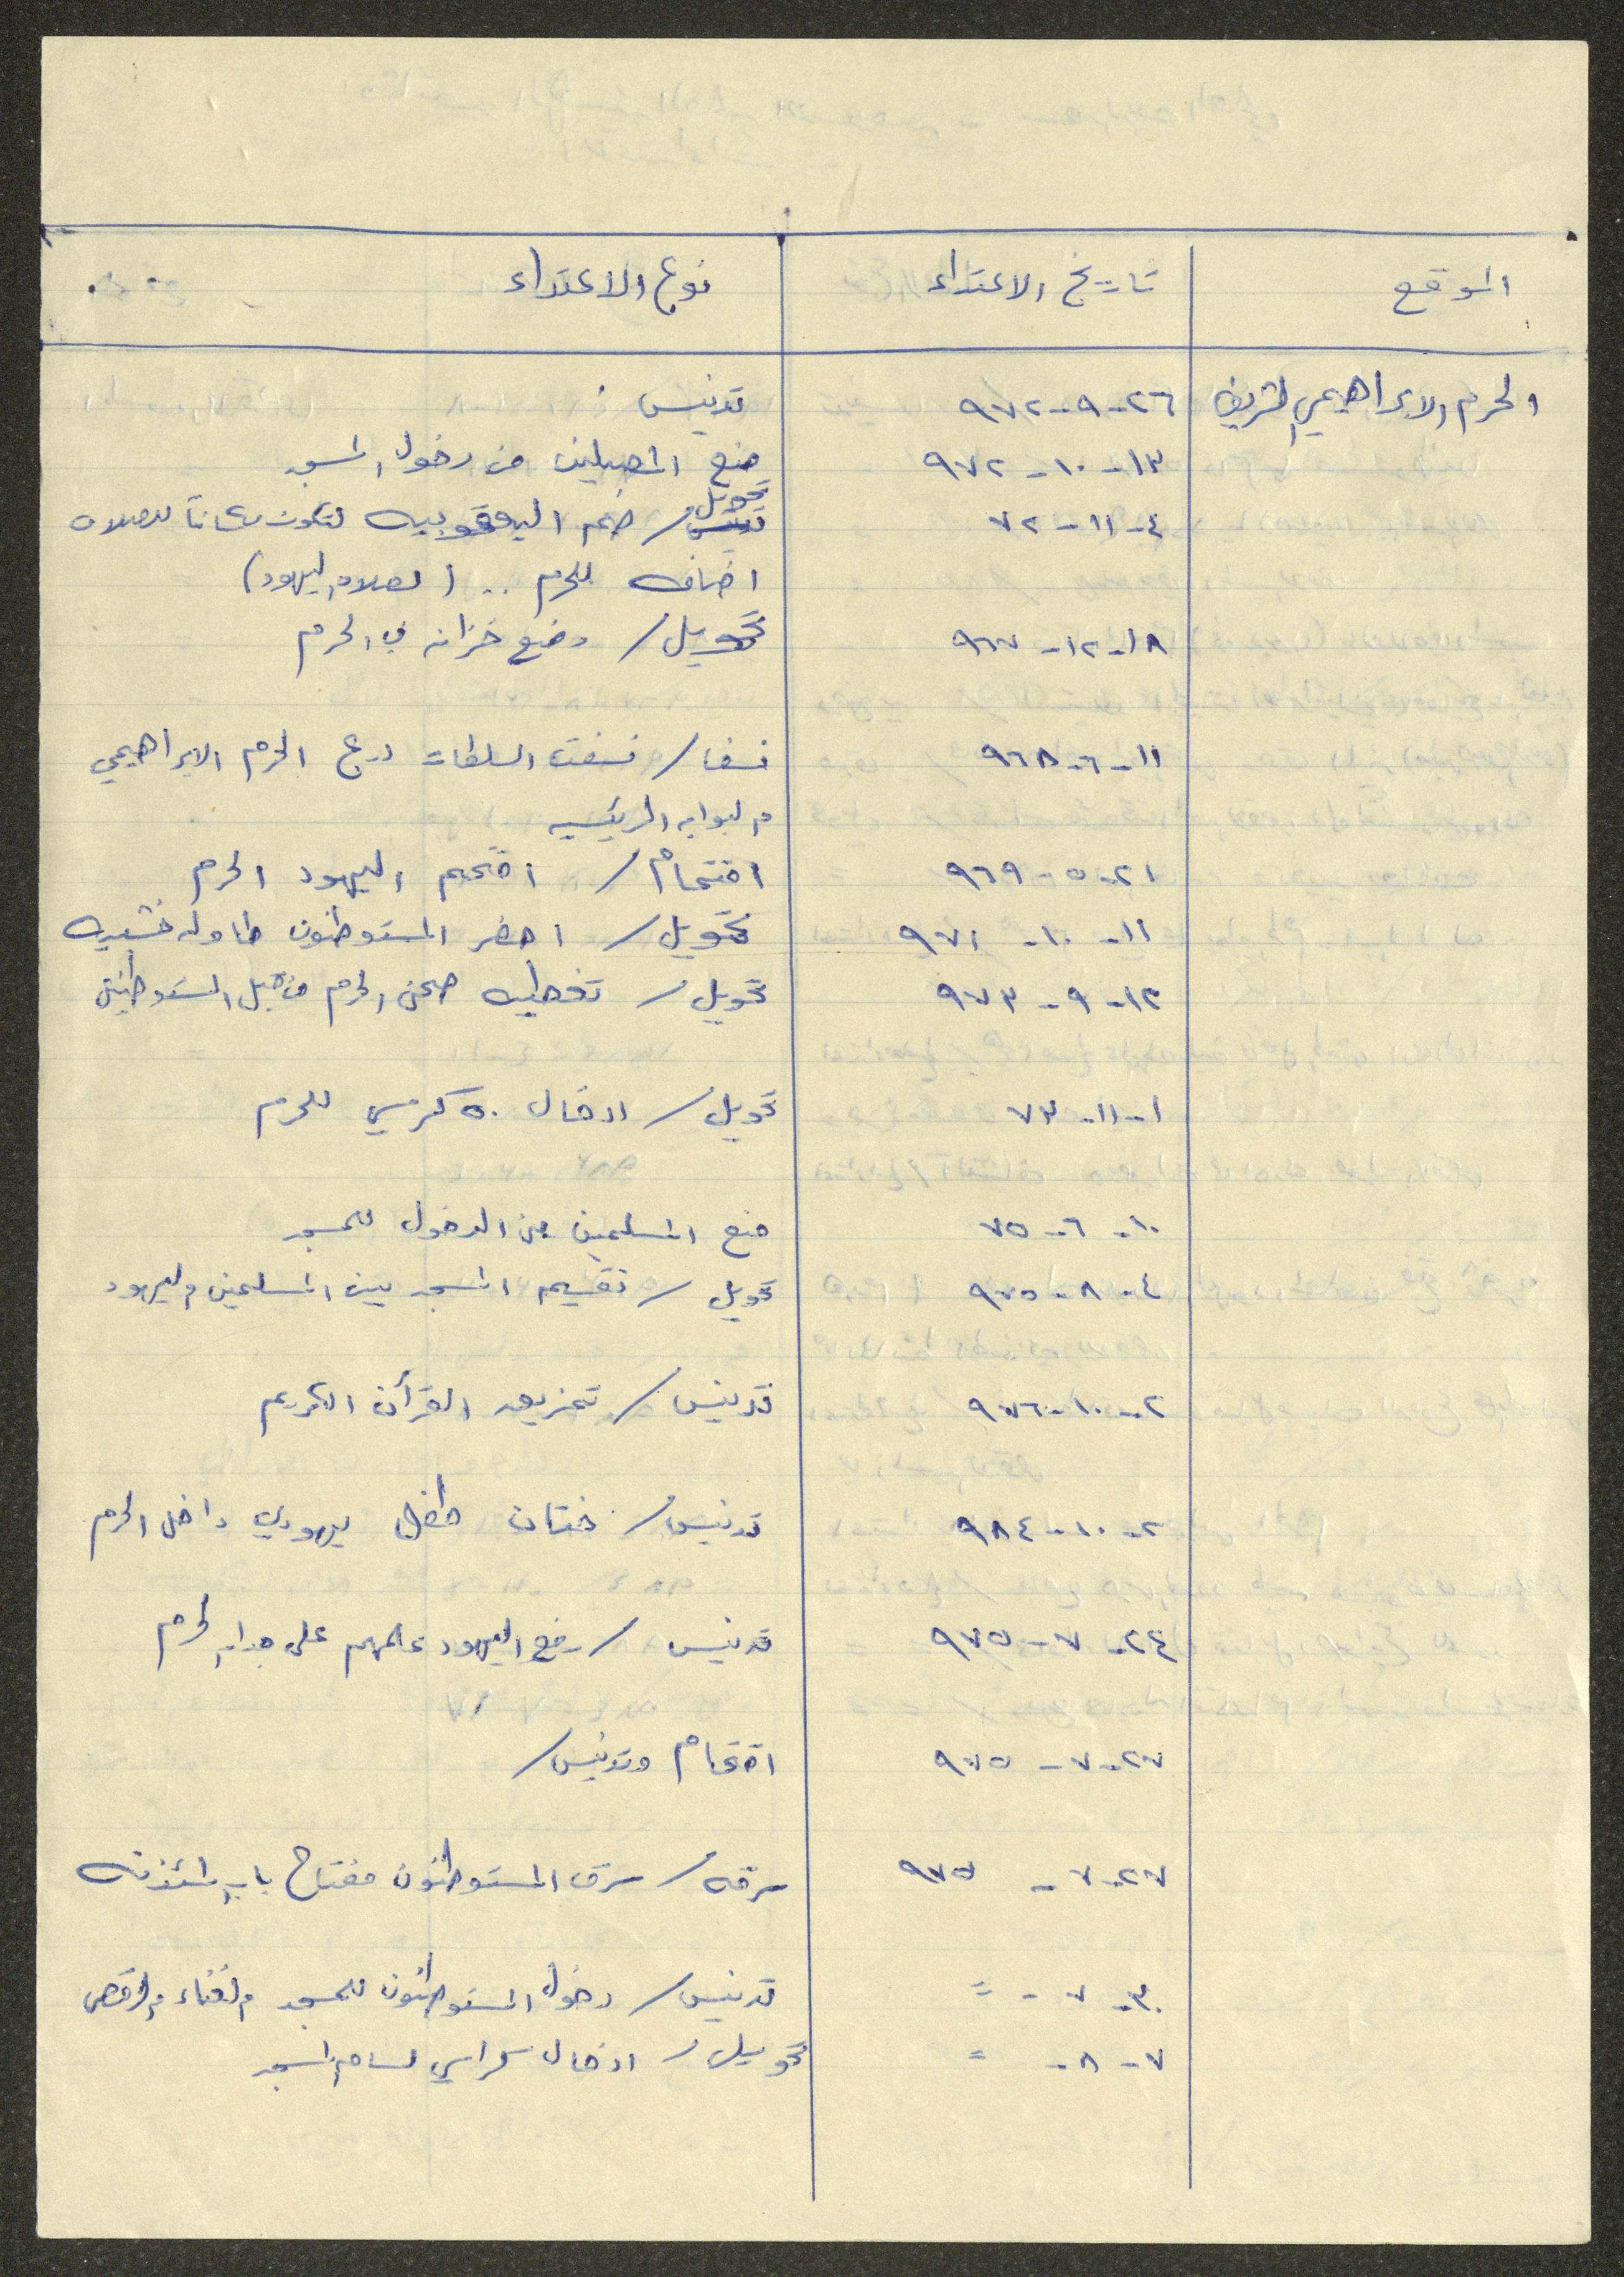 الموقع | تاريخ الاعتداء | نوع الاعتداء
الحرم الابراهيمي الشريف | ٢٦-٩-٩٧٢ | تدنيس
١٣-١٠-٩٧٢ | منع المصلين من دخول المسجد
٤-١١-٧٢ | تحويل / ضم اليعقوبيه لتكون مكاناً للصلاه
اضافه للحرم .. (لصلاه اليهود)
١٨-١٢-٩٦٧ | تحويل / وضع خزانه في الحرم
١١-٦-٩٦٨ | نسف / نسفت السلطات درج الحرم الابراهيمي
والبوابه الرئيسيه
٢١-٥-٩٦٩ | اقتحام / اقتحم اليهود الحرم
١١-١٠-٩٧١ | تحويل / احضر المستوطنون طاوله خشبيه
١٢-٩-٩٧٣ | تحويل / تغطيه صحن الحرم من قبل المستوطنين
١-١١-٧٣ | تحويل / ادخال ٥٠ كرسي للحرم
١٠-٦-٧٥ | منع المسلمين من الدخول للمسجد
٤-٨-٩٧٥ | تحويل / تقسيم المسجد بين المسلمين واليهود
٢-١٠-٩٧٦ | تدنيس / تمزيق القرآن الكريم
٢-١٠-٩٨٤ | تدنيس / ختان طفل يهودي داخل الحرم
٢٤-٧-٩٧٥ | تدنيس / رفع اليهود علمهم على جدار الحرم
٢٧-٧-٩٧٥ | اقتحام وتدنيس /
٢٧-٧-٩٧٥ | سرقه / سرق المستوطنون مفتاح باب المئذنه
٣٠-٧- = | تدنيس / دخول المستوطنون للمسجد والغناء والرقص
٧-٨- = | تحويل / ادخال كراسي المسجد